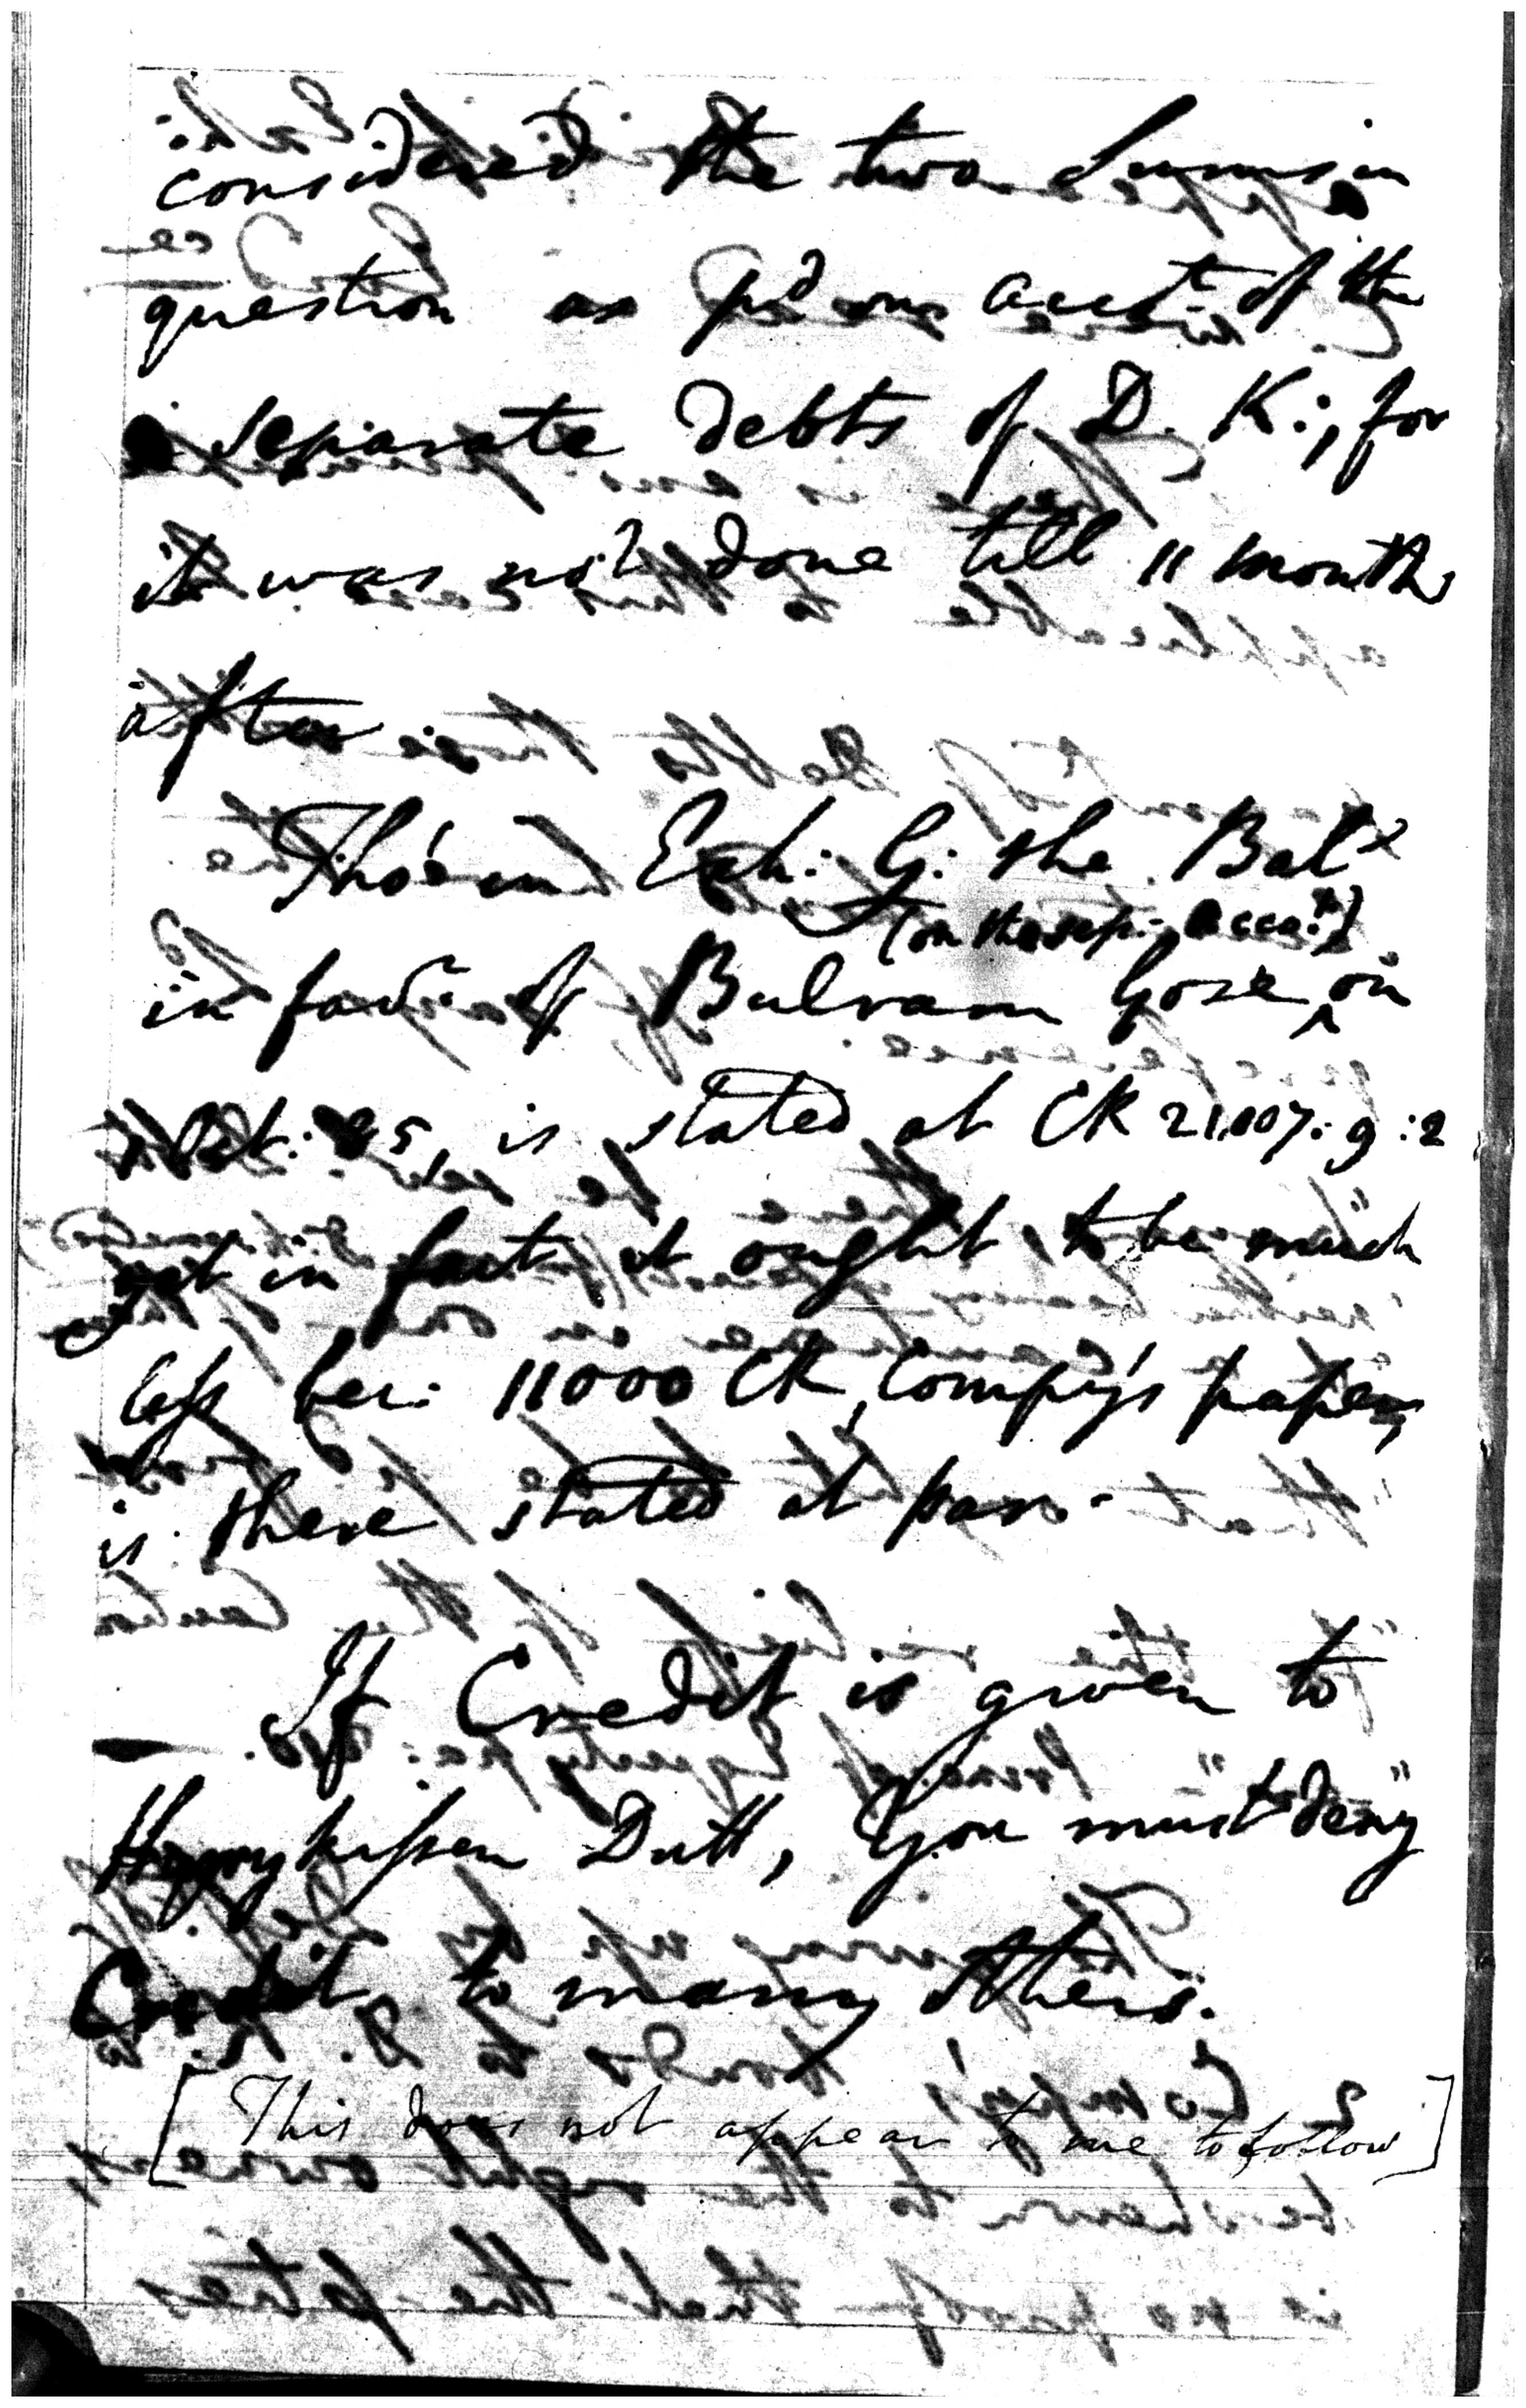 considered the two Sums in
question as p^d on acco^t of the
separate Debts of D. K:, for
it was not done till 11 months
after.
Tho' in Exh: G: the Bal^e
(on the sep: Acco^t)
in fav^r of Bulram Gose ^ on
Oct: 25, is stated at CR 21,007: 9 : 2
yet in fact it ought to be much
less bec: 11000 CR Compy's paper,
is there stated at par -
If Credit is given to
Hurrykissen Dutt, You must "deny"
Credit to many others.
[This does not appear to me to follow]